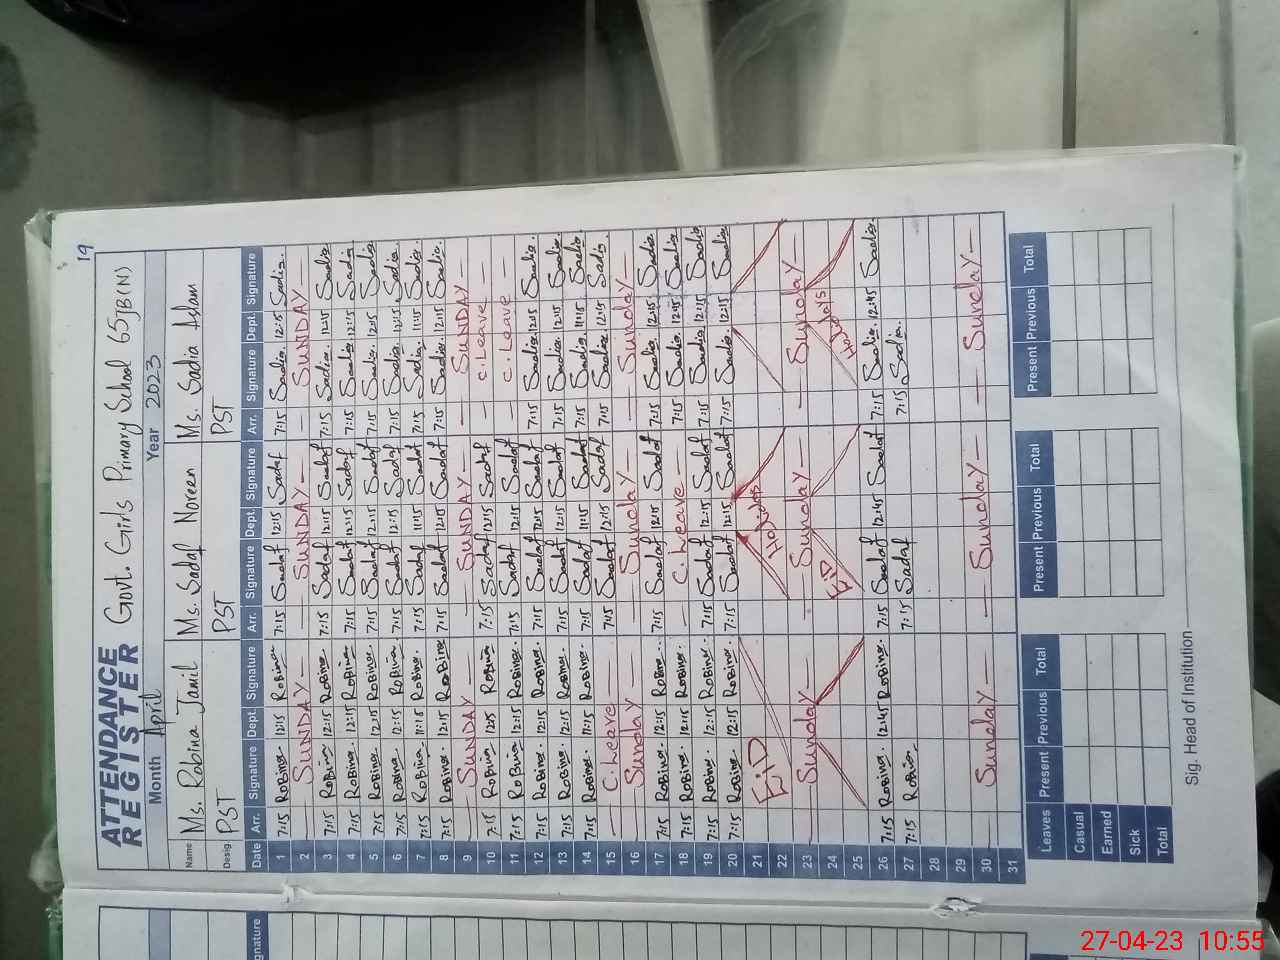 19
ATTENDANCE REGISTER Govt. Girls Primary School 65JB(N)
Month April Year 2023
Name Ms. Robina Jamil Ms. Sadaf Noreen Ms. Sadia Aslam
Desig. PST PST PST
Date Arr. Signature Dept. Signature Arr. Signature Dept. Signature Arr. Signature Dept. Signature
1 7:15 Robina 12:15 Robina 7:15 Sadaf 12:15 Sadaf 7:15 Sadia 12:15 Sadia
2 SUNDAY SUNDAY SUNDAY
3 7:15 Robina 12:15 Robina 7:15 Sadaf 12:15 Sadaf 7:15 Sadia 12:15 Sadia
4 7:15 Robina 12:15 Robina 7:15 Sadaf 12:15 Sadaf 7:15 Sadia 12:15 Sadia
5 7:15 Robina 12:15 Robina 7:15 Sadaf 12:15 Sadaf 7:15 Sadia 12:15 Sadia
6 7:15 Robina 12:15 Robina 7:15 Sadaf 12:15 Sadaf 7:15 Sadia 12:15 Sadia
7 7:15 Robina 11:15 Robina 7:15 Sadaf 11:15 Sadaf 7:15 Sadia 11:15 Sadia
8 7:15 Robina 12:15 Robina 7:15 Sadaf 12:15 Sadaf 7:15 Sadia 12:15 Sadia
9 SUNDAY SUNDAY SUNDAY
10 7:15 Robina 12:15 Robina 7:15 Sadaf 12:15 Sadaf C.Leave
11 7:15 Robina 12:15 Robina 7:15 Sadaf 12:15 Sadaf C.Leave
12 7:15 Robina 12:15 Robina 7:15 Sadaf 12:15 Sadaf 7:15 Sadia 12:15 Sadia
13 7:15 Robina 12:15 Robina 7:15 Sadaf 12:15 Sadaf 7:15 Sadia 12:15 Sadia
14 7:15 Robina 11:15 Robina 7:15 Sadaf 11:15 Sadaf 7:15 Sadia 11:15 Sadia
15 C.Leave 7:15 Sadaf 12:15 Sadaf 7:15 Sadia 12:15 Sadia
16 Sunday Sunday Sunday
17 7:15 Robina 12:15 Robina 7:15 Sadaf 12:15 Sadaf 7:15 Sadia 12:15 Sadia
18 7:15 Robina 12:15 Robina C.Leave 7:15 Sadia 12:15 Sadia
19 7:15 Robina 12:15 Robina 7:15 Sadaf 12:15 Sadaf 7:15 Sadia 12:15 Sadia
20 7:15 Robina 12:15 Robina 7:15 Sadaf 12:15 Sadaf 7:15 Sadia 12:15 Sadia
21 EID Holidays
22
23 Sunday Sunday Sunday
24 EID Holidays
25
26 7:15 Robina 12:45 Robina 7:15 Sadaf 12:45 Sadaf 7:15 Sadia 12:45 Sadia
27 7:15 Robina 7:15 Sadaf 7:15 Sadia
28
29
30 Sunday Sunday Sunday
31
Leaves Present Previous Total Present Previous Total Present Previous Total
Casual
Earned
Sick
Total
Sig. Head of Institution
gnature
27-04-23 10:55